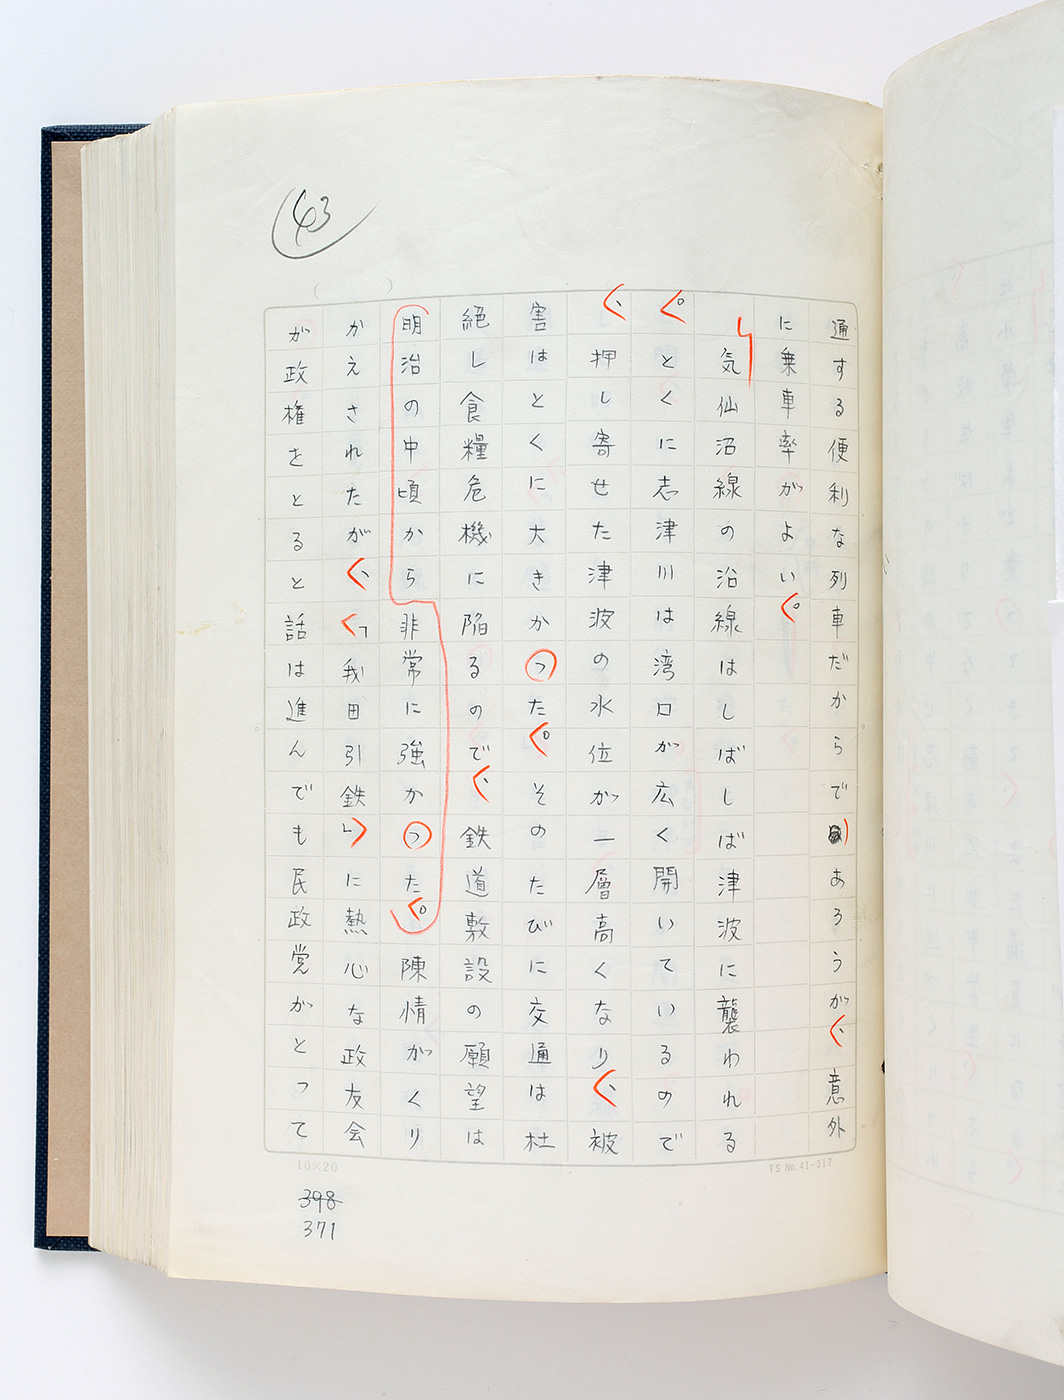 43
通する便利な列車だからであろうが、意外
に乗車率がよい。
気仙沼線の沿線はしばしば津波に襲われる
。とくに志津川は湾口が広く開いているので
、押し寄せた津波の水位が一層高くなり、被
害はとくに大きかった。そのたびに交通は杜
絶し食糧危機に陥るので、鉄道敷設の願望は
明治の中頃から非常に強かった。陳情がくり
かえされたが、「我田引鉄」に熱心な政友会
が政権をとると話は進んでも民政党がとって
10×20
398
371